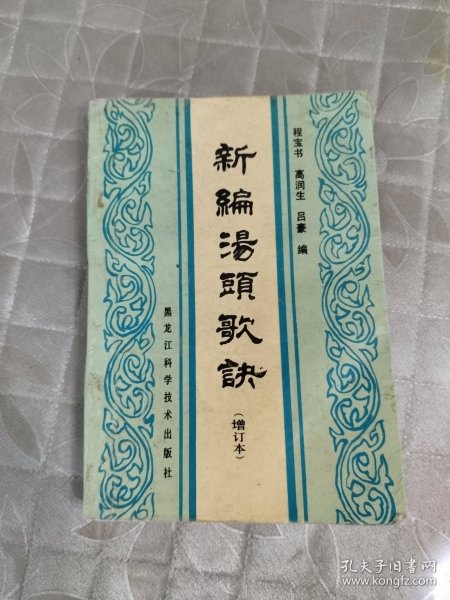 程宝书 高润生 吕豪 编
新編湯頭歌訣
（增订本）
黑龙江科学技术出版社
孔夫子旧书网
www.kongfz.com